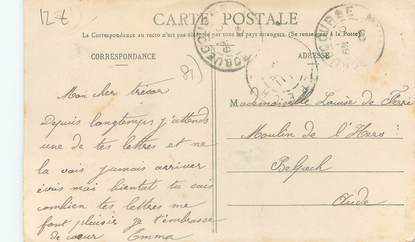 12-€
CARTE POSTALE
La Correspondance au recto n'est pas acceptée par tous les pays étrangers (Se renseigner à la Poste)
CORRESPONDANCE
ADRESSE
81)
Mon cher trésor
Depuis longtemps j'attends
une de tes lettres et ne
la vois jamais arriver
écris moi bientôt tu sais
combien tes lettres me
font plaisir je t'embrasse
de cœur Emma
Mademoiselle Louise de
Moulin de l'Hers
Belpech
Aude